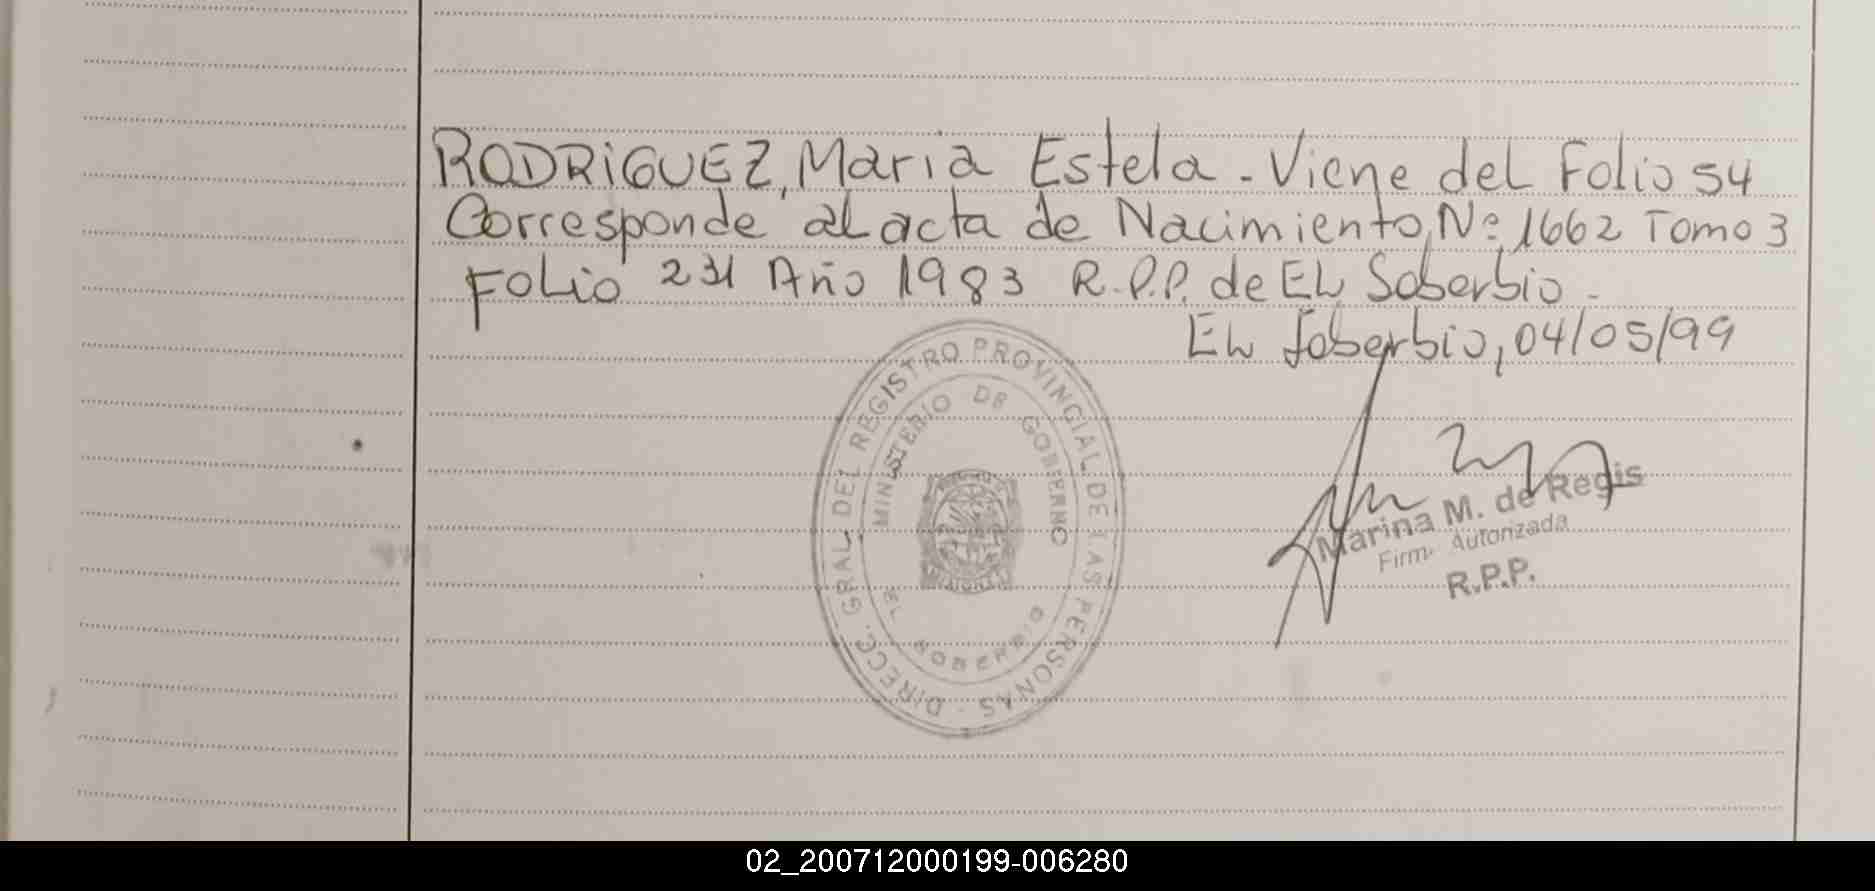 RODRIGUEZ, Maria Estela - Viene del Folio 54
Corresponde al acta de Nacimiento, Nº 1662 Tomo 3
Folio 231 Año 1983 R.P.P. de EL Soberbio -
EL Soberbio, 04/05/99
DIRECC. GRAL. DEL REGISTRO PROVINCIAL DE LAS PERSONAS -
MINISTERIO DE GOBIERNO
EL SOBERBIO
Marina M. de Regis
Firm. Autorizada
R.P.P.
02_200712000199-006280